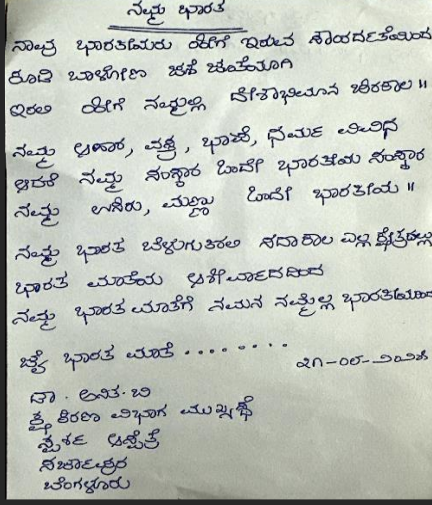 ನಮ್ಮ ಭಾರತ
ನಾವು ಭಾರತೀಯರು ಹೀಗೆ ಇರುವ ಸೌಹಾರ್ದತೆಯಿಂದ
ಕೂಡಿ ಬಾಳೋಣ ಜತೆ ಜತೆಯಾಗಿ
ಇರಲಿ ಹೀಗೆ ನಮ್ಮಲ್ಲಿ ದೇಶಾಭಿಮಾನ ಚಿರಕಾಲ ॥
ನಮ್ಮ ಆಹಾರ, ವಸ್ತ್ರ, ಭಾಷೆ, ಧರ್ಮ ವಿವಿಧ
ಆದರೆ ನಮ್ಮ ಸಂಸ್ಕಾರ ಒಂದೇ ಭಾರತೀಯ ಸಂಸ್ಕಾರ
ನಮ್ಮ ಉಸಿರು, ಮಣ್ಣು ಒಂದೇ ಭಾರತೀಯ ॥
ನಮ್ಮ ಭಾರತ ಬೆಳಗುತಿರಲಿ ಸದಾಕಾಲ ಎಲ್ಲ ಕ್ಷೇತ್ರದಲ್ಲೂ
ಭಾರತ ಮಾತೆಯ ಆಶೀರ್ವಾದದಿಂದ
ನಮ್ಮ ಭಾರತ ಮಾತೆಗೆ ನಮನ ನಮ್ಮೆಲ್ಲ ಭಾರತೀಯರಿಂದ
ಜೈ ಭಾರತ ಮಾತೆ ........
ಡಾ. ಅನಿತ. ಬಿ
ಕ್ಷ ಕಿರಣ ವಿಭಾಗ ಮುಖ್ಯಸ್ಥೆ
ಸ್ಪರ್ಶ ಆಸ್ಪತ್ರೆ
ಸರ್ಜಾಪುರ
ಬೆಂಗಳೂರು